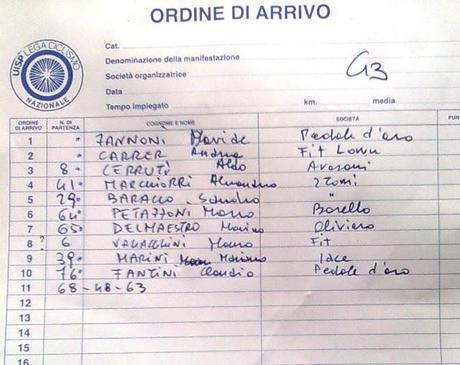 ORDINE DI ARRIVO
UISP LEGA CICLISMO
NAZIONALE
Cat.
Denominazione della manifestazione
Società organizzatrice
G3
Data
Tempo impiegato km. media
ORDINE DI ARRIVO N. DI PARTENZA COGNOME E NOME SOCIETÀ PUN
1 " ZANNONI Davide Pedale d'oro
2 " CARRER Andrea Fit
3 8 CERRUTI Aldo
4 41 MARCHIORRI 2 Tomi
5 29 BARACCO Sandro "
6 64 PETAZZONI Mauro Borello
7 65 DELMAESTRO Marino Oliviero
8 ? 6 VALACCHINI Mauro Fit
9 39 MARINI Massimo
10 76 FANTINI Claudio Pedale d'oro
11 68-48-63
12
13
14
15
16